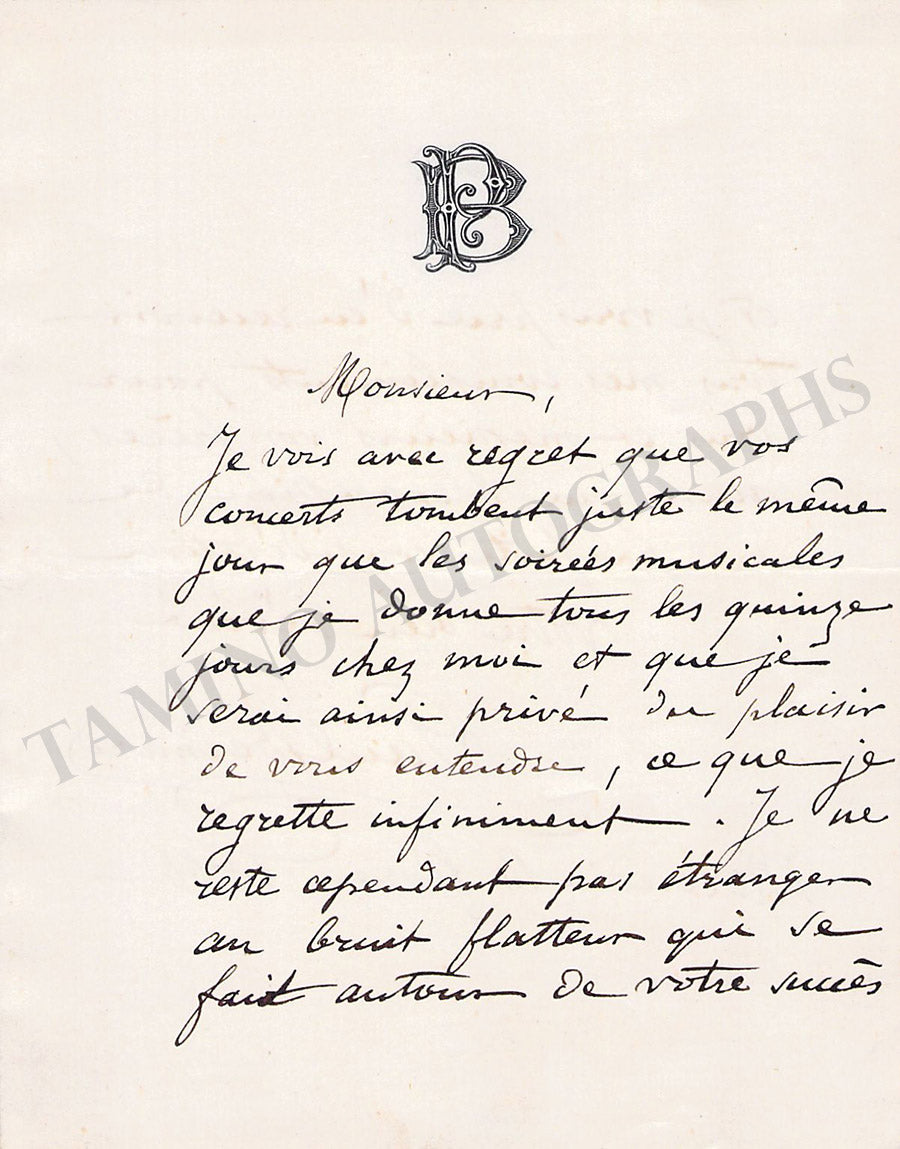 Monsieur,
Je vois avec regret que vos
concerts tombent juste le même
jour que les soirées musicales
que je donne tous les quinze
jours chez moi et que je
serai ainsi privé du plaisir
de vous entendre, ce que je
regrette infiniment. Je ne
reste cependant pas étranger
au bruit flatteur qui se
fait autour de votre succès
TAMINO AUTOGRAPHS